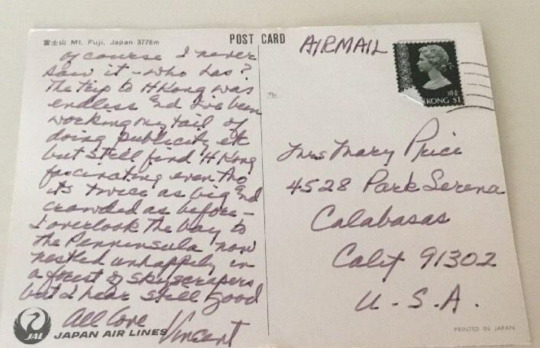 富士山 Mt. Fuji, Japan 3776m
POST CARD
of course I never
saw it - who has?
The trip to HKong was
endless and I've been
working my tail off
doing publicity etc
but still find H Kong
fascinating even tho'
its twice as big and
crowded as before -
I overlook the bay to
the Penninsula now
nestled unhappily in
a forest of skyscrapers
but I hear still good
All love
Vincent
JAL
JAPAN AIR LINES
AIRMAIL
KONG $1
Mrs Mary Price
4528 Park Serena
Calabasas
Calif 91302
U.S.A.
PRINTED IN JAPAN